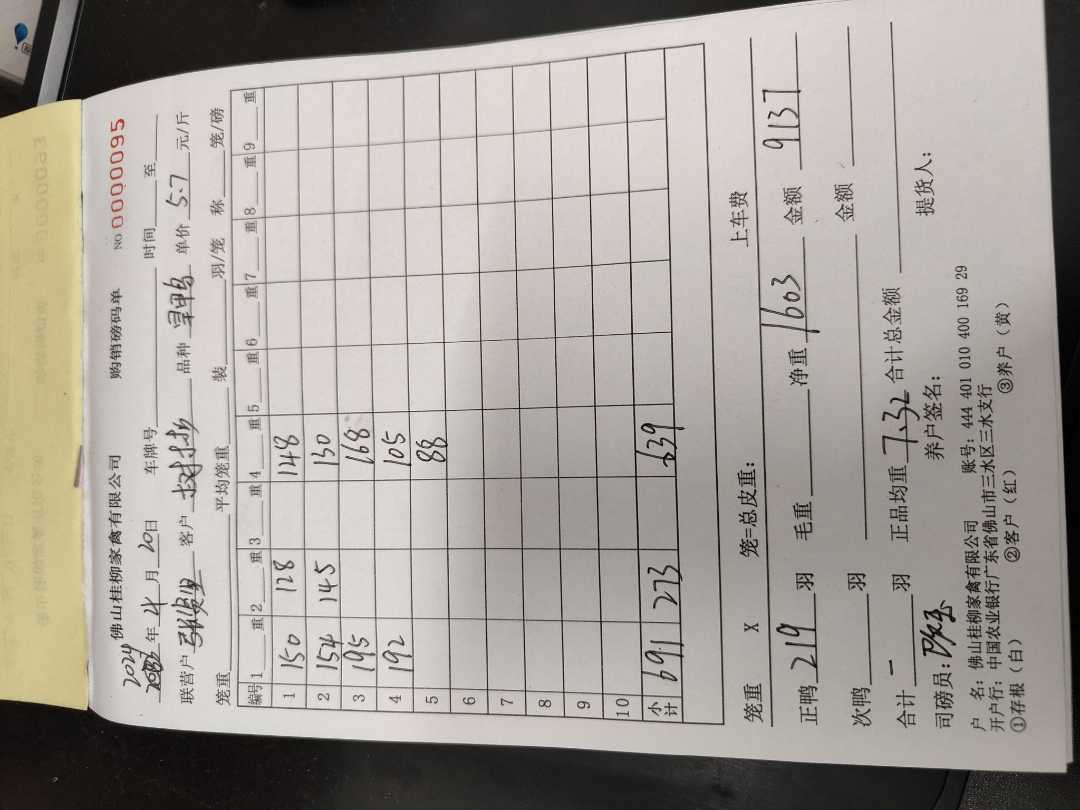 佛山桂柳家禽有限公司 购销磅码单 NO 0000095
2024年 4月 20日 车牌号 时间 至
联营户 客户 品种 旱鸭 单价 5.7 元/斤
笼重 平均笼重 装 羽/笼 称 笼/磅
编号 1 重 2 重 3 重 4 重 5 重 6 重 7 重 8 重 9 重
1 150 128 148
2 154 145 130
3 195 168
4 192 105
5 88
6
7
8
9
10
小计 691 273 639
笼重 X 笼=总皮重: 上车费
正鸭 219 羽 毛重 净重 1603 金额 9137
次鸭 羽 金额
合计 一 羽 正品均重 7.32 合计总金额
司磅员: 养户签名: 提货人:
户 名: 佛山桂柳家禽有限公司 账号: 444 401 010 400 169 29
开户行: 中国农业银行广东省佛山市三水区三水支行
①存根(白) ②客户(红) ③养户(黄)